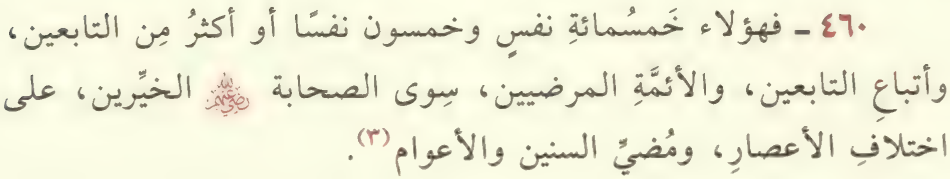 ٤٦٠ ـ فهؤلاء خَمسُمائةِ نفسٍ وخمسون نفسًا أو أكثرُ مِن التابعين،
وأتباعِ التابعين، والأئمَّةِ المرضيين، سِوى الصحابة رضي الله عنهم الخيِّرين، على
اختلافِ الأعصارِ، ومُضيِّ السنين والأعوام(٣).